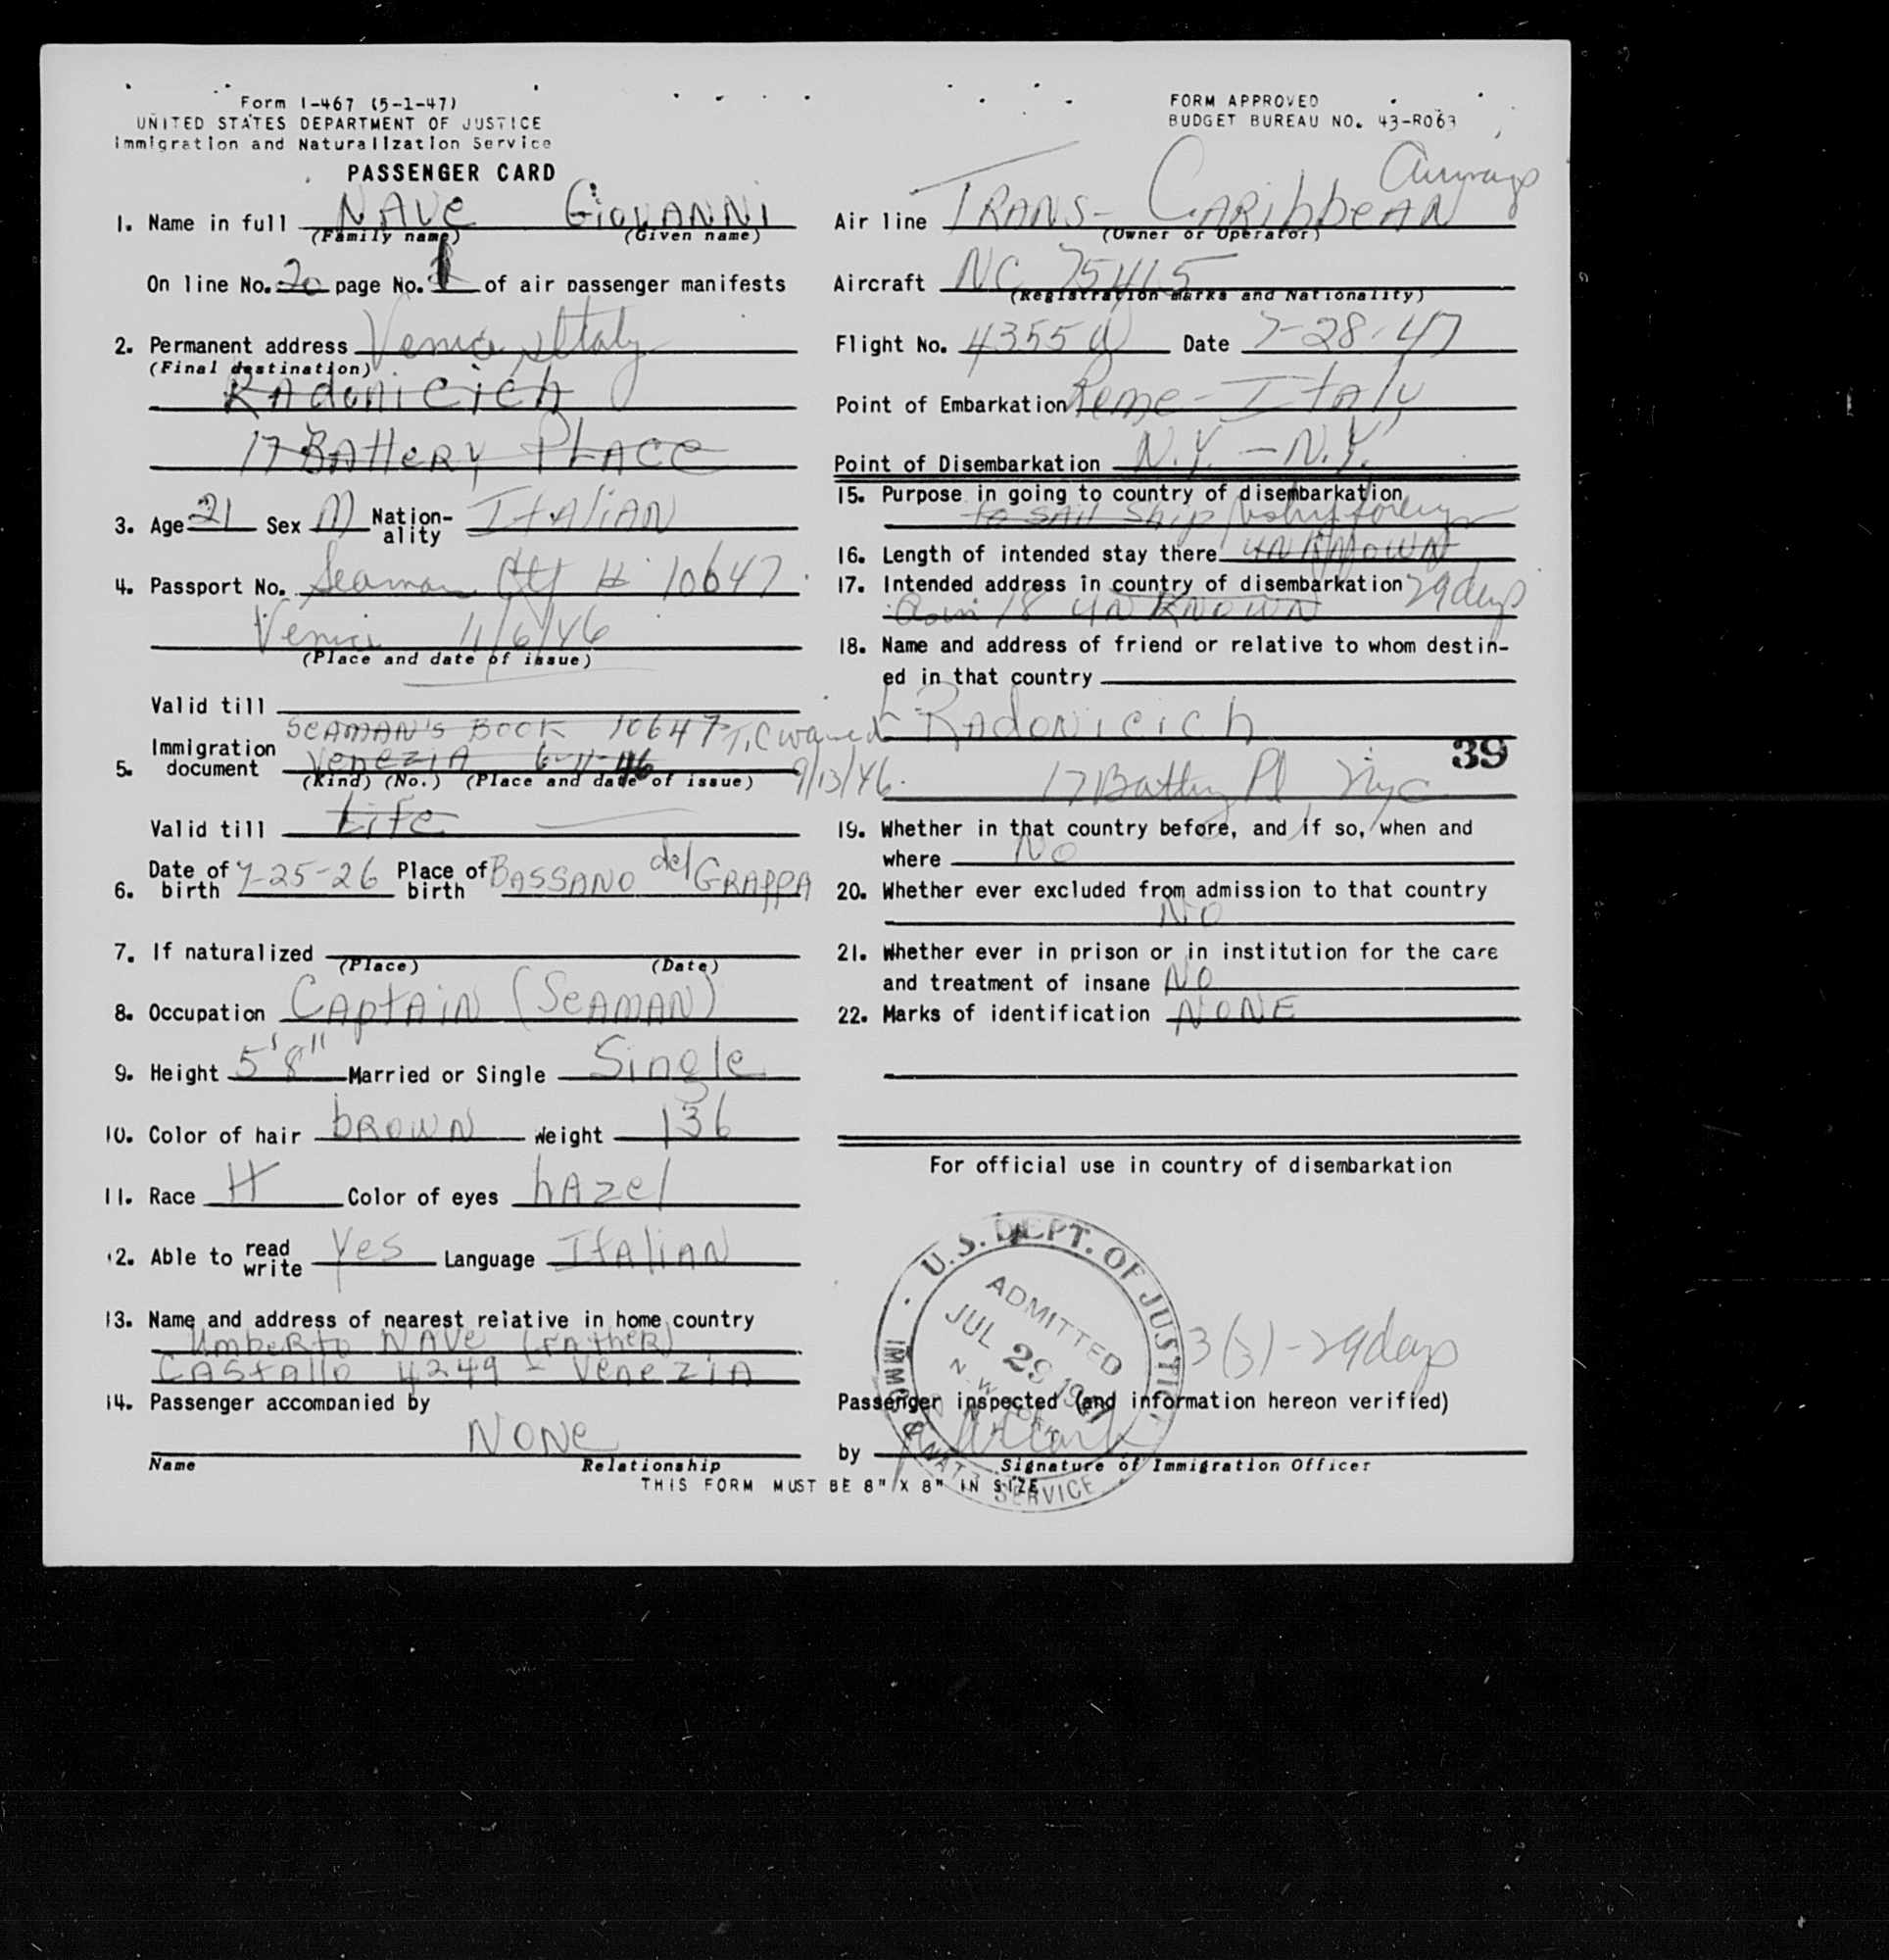 Form I-467 (5-1-47)
UNITED STATES DEPARTMENT OF JUSTICE
Immigration and Naturalization Service
PASSENGER CARD
1. Name in full NAVe GiOVANNI
(Family name) (Given name)
On line No. 20 page No. of air passenger manifests
2. Permanent address Venice, Italy
(Final destination)
RAdoniCich
17 BAtteRy PLACe
3. Age 21 Sex M Nationality ItAliAN
4. Passport No. Seaman Ctf # 10647
Venice 11/6/46
(Place and date of issue)
Valid till
SeAMAN'S BOOK 10647
5. Immigration document VeneziA 6-11-46
(Kind) (No.) (Place and date of issue)
Valid till Life
6. Date of birth 7-25-26 Place of birth BASSANO del GRAppA
7. If naturalized
(Place) (Date)
8. Occupation CAptAiN (SeAMAN)
9. Height 5'8" Married or Single Single
10. Color of hair bROWN Weight 136
11. Race H Color of eyes hAzel
12. Able to read write Yes Language ItAliAN
13. Name and address of nearest relative in home country
UmbeRto NAVe (FAtheR)
CAStAllo 4249 - VeneziA
14. Passenger accompanied by
NONe
Name Relationship
THIS FORM MUST BE 8" X 8" IN SIZE
FORM APPROVED
BUDGET BUREAU NO. 43-R063
Airways
Air line TRANS- CARibbeAN
(Owner or Operator)
Aircraft NC 75415
(Registration marks and Nationality)
Flight No. 4355 Date 7-28-47
Point of Embarkation Rome - ItAly
Point of Disembarkation N.Y. - N.Y.
15. Purpose in going to country of disembarkation
to SAil Ship
16. Length of intended stay there UNKNOWN
17. Intended address in country of disembarkation 29 days
18 UNKNOWN
18. Name and address of friend or relative to whom destined in that country
T.C waived RAdoniCich
9/13/46
39
17 Battery Pl NYC
19. Whether in that country before, and if so, when and
where NO
20. Whether ever excluded from admission to that country
NO
21. Whether ever in prison or in institution for the care
and treatment of insane NO
22. Marks of identification NONE
For official use in country of disembarkation
U.S. DEPT. OF JUSTICE
ADMITTED
JUL 29 1947
IMMG & NATZ SERVICE
3(3) - 29 days
Passenger inspected (and information hereon verified)
by
Signature of Immigration Officer